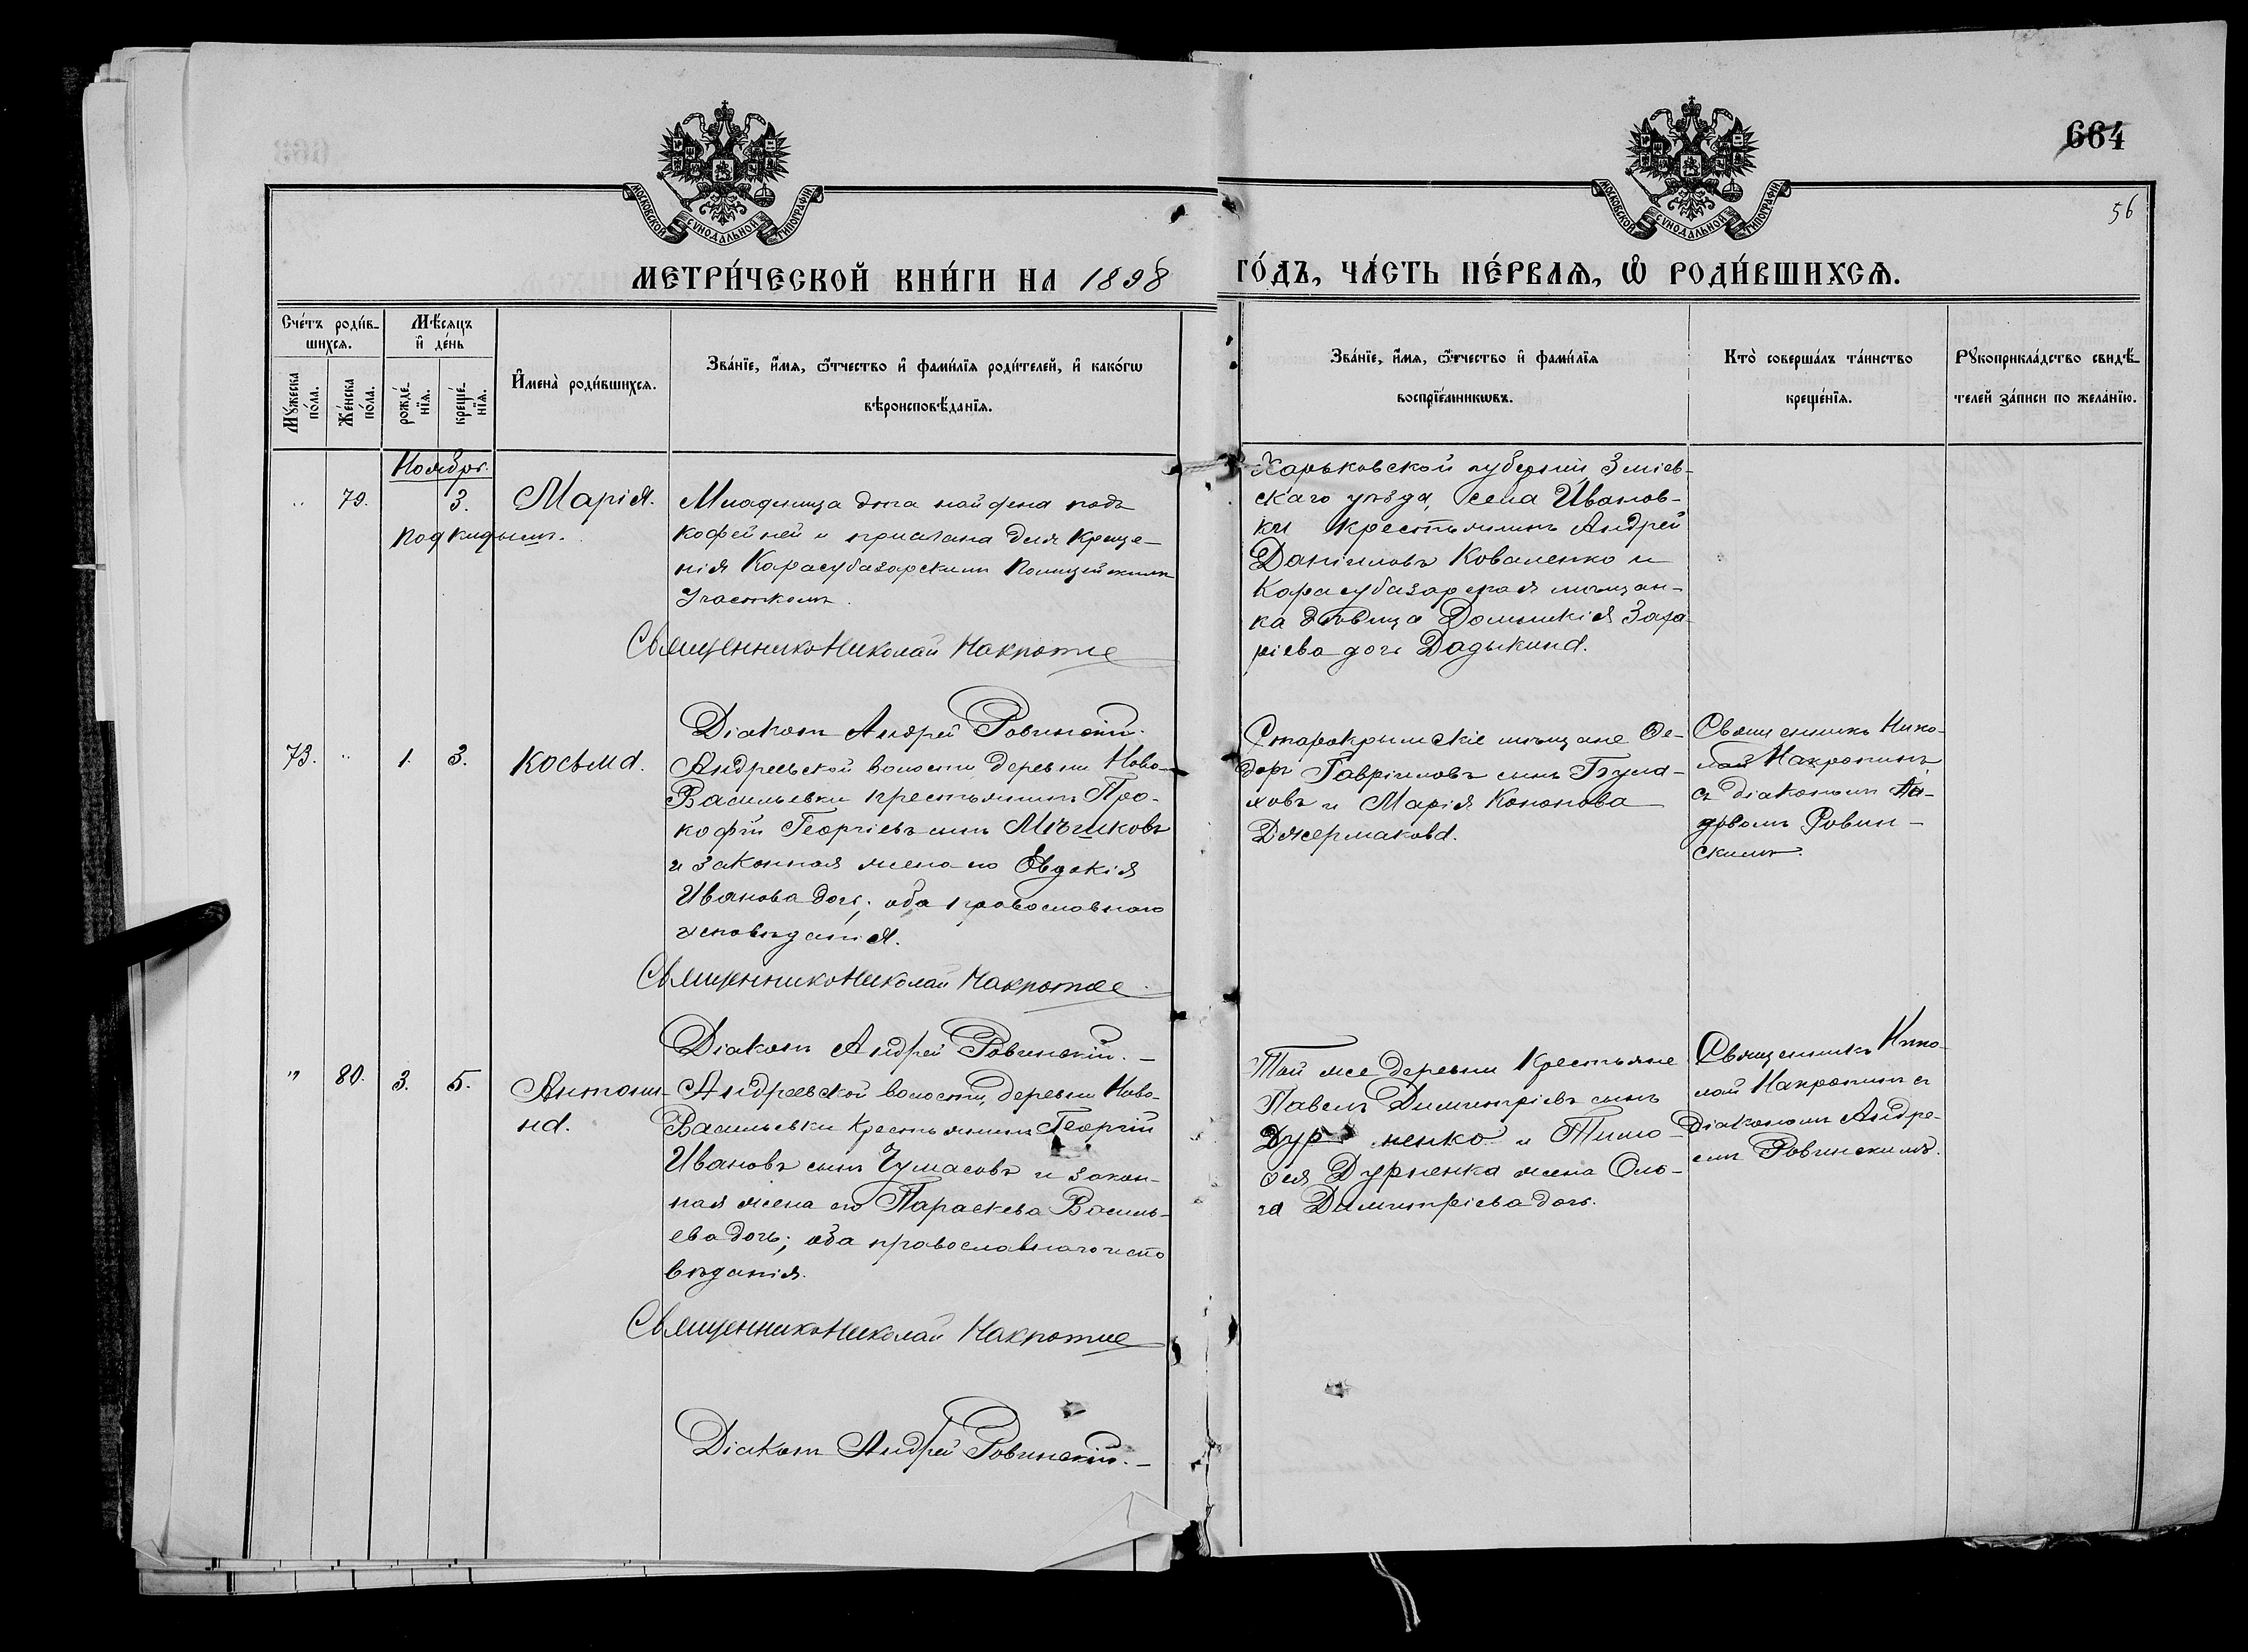 664
56
МОСКОВСКОЙ СѴНОДАЛЬНОЙ ТИПОГРАФІИ
МОСКОВСКОЙ СѴНОДАЛЬНОЙ ТИПОГРАФІИ
МЕТРИ́ЧЕСКОЙ КНИ́ГИ НА 1898
ГО́ДЪ, ЧА́СТЬ ПЕ́РВАѦ, Ѡ҆ РОДИ́ВШИХСѦ.
Сче́тъ роди́в-
шихсѧ.
Мѣ́сѧцъ
и҆ де́нь
Мꙋ́жеска
по́ла.
Же́нска
по́ла.
рожде́-
нїѧ.
креще́-
нїѧ.
И҆мена̀ роди́вшихсѧ.
Зва́нїе, и҆́мѧ, ѻ҆́тчество и҆ фами́лїѧ роди́телей, и҆ како́гѡ
вѣроисповѣ́данїѧ.
Зва́нїе, и҆́мѧ, ѻ҆́тчество и҆ фами́лїѧ
воспрїе́мникѡвъ.
Кто̀ соверша́лъ та́инство
креще́нїѧ.
Рꙋкоприкла́дство свидѣ́-
телей за́писи по жела́нїю.
Ноябрь.
" 79. 3. Марія.
подкидышъ.
Младеница эта найдена подъ
кофейней и прислана для креще-
нія Карасубазарскимъ Полицейскимъ
Участкомъ.
Священникъ Николай Накропинъ
Діаконъ Андрей Ровинскій.
Харьковской губерніи, Зміев-
скаго уѣзда, села Иванов-
ки крестьянинъ Андрей
Даніиловъ Коваленко и
Карасубазарская мѣщан-
ка дѣвица Домникія Заха-
ріева дочь Дадыкина.
73. " 1. 3. Косьма.
Андреевской волости деревни Ново-
Васильевки крестьянинъ Про-
кофій Георгіевъ сынъ Мѣшковъ
и законная жена его Евдокія
Иванова дочь; оба православнаго
исповѣданія.
Священникъ Николай Накропинъ
Діаконъ Андрей Ровинскій.
Старокрымскіе мѣщане Ѳе-
доръ Гавріиловъ сынъ
и Марія Кононова
Джермакова.
Священникъ Нико-
лай Накропинъ
съ діакономъ Ан-
дреемъ Ровин-
скимъ.
" 80. 3. 5. Антони-
на.
Андреевской волости, деревни Ново-
Васильевки крестьянинъ Георгій
Ивановъ сынъ Чумасовъ и закон-
ная жена его Параскева Василь-
ева дочь; оба православнаго испо
вѣданія.
Священникъ Николай Накропинъ
Діаконъ Андрей Ровинскій.
Той же деревни крестьяне
Павелъ Димитріевъ сынъ
Дурненко и Тимо-
ѳея Дурненка жена Оль-
га Димитріева дочь.
Священникъ Нико-
лай Накропинъ съ
діакономъ Андре-
емъ Ровинскимъ.